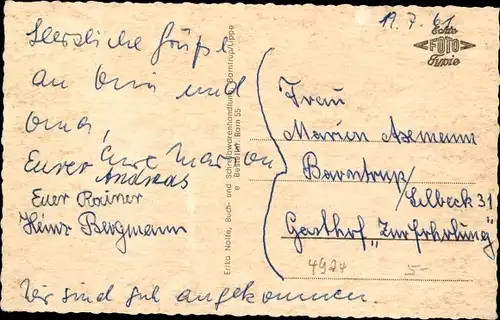 19.7.61
Echte
FOTO
Typie
Herzliche Grüße
an Omi und
Oma,
Eurer Curt Marion
Andreas
Euer Rainer
Heinr Bergmann
Wir sind gut angekommen.
Erika Nolte, Buch- und Schreibwarenhandlung, Barntrup/Lippe
Bestellnr. Barn 55
Frau
Marion
Barntrup/
Selbeck 31
Gasthof "Zur Erholung"
4924
5-